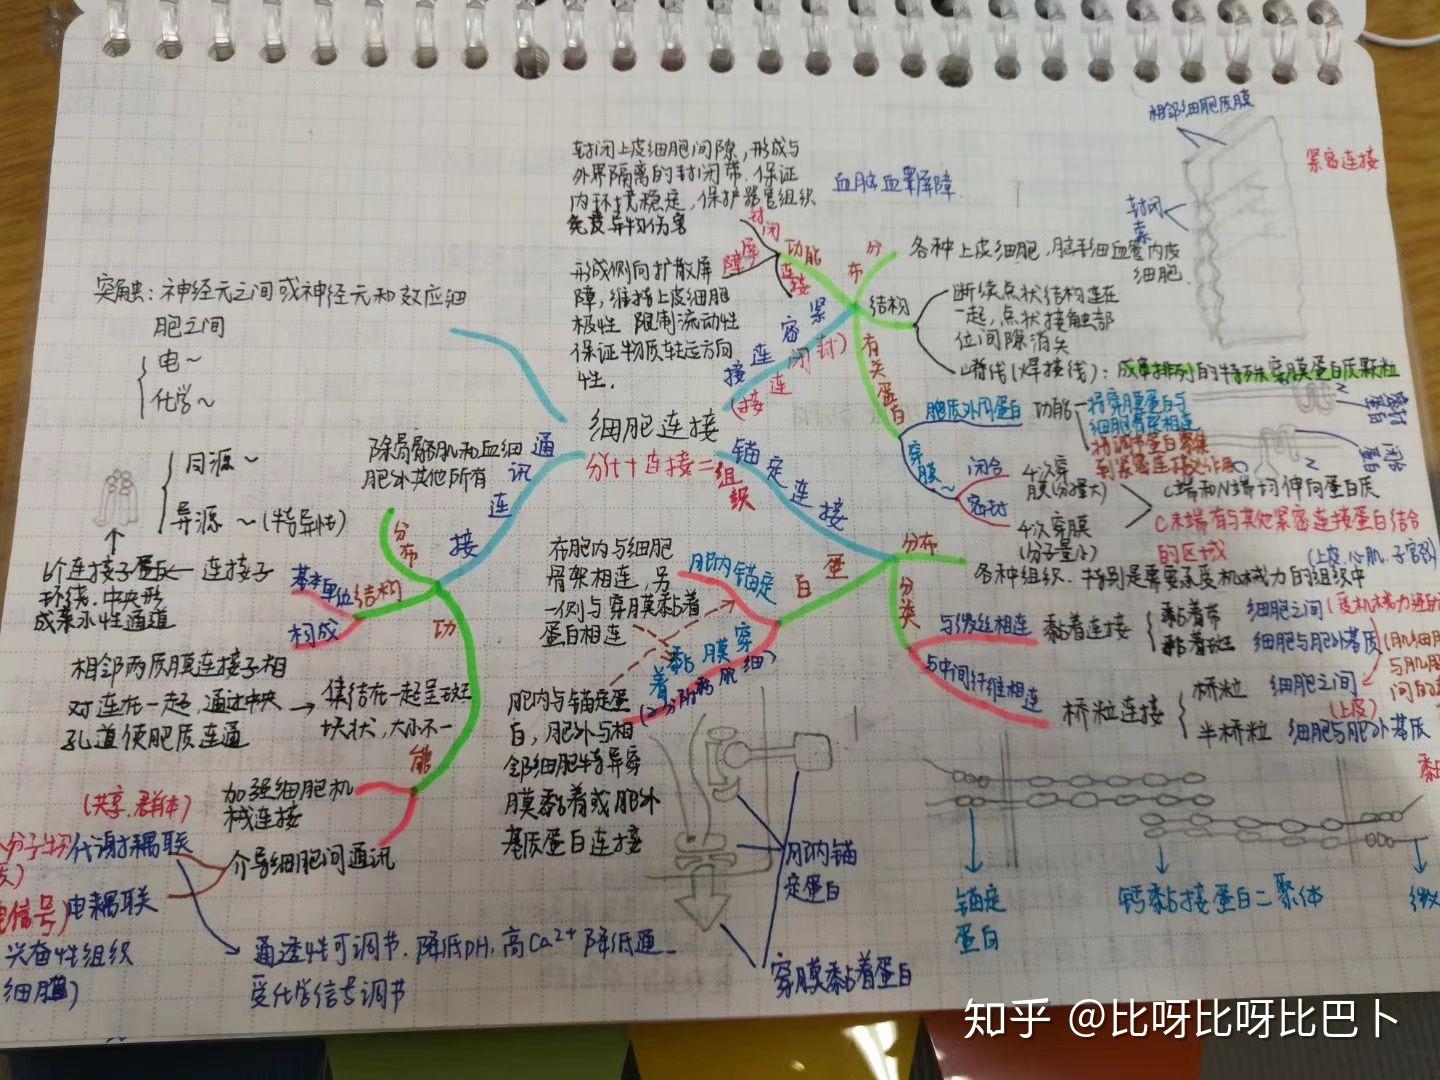 相邻细胞质膜
紧密连接
封闭
索
封闭上皮细胞间隙，形成与
外界隔离的封闭带，保证
内环境稳定，保护器官组织
免受异物伤害
血脑血睾屏障
封闭
屏障
连接
功能
形成侧向扩散屏
障，维持上皮细胞
极性 限制流动性
保证物质转运方向
性．
分布
各种上皮细胞，脑毛细血管内皮
细胞
结构
断续点状结构连在
一起，点状接触部
位间隙消失
嵴线(焊接线)：成串排列的特殊穿膜蛋白质颗粒
紧密连接
(封闭连接)
有关蛋白
胞质外周蛋白
功能
将穿膜蛋白与
细胞骨架相连
将调节蛋白聚集
到紧密连接
穿膜~
闭合
密封
4次穿
膜(分子量大)
4次穿膜
(分子量小)
C端和N端均伸向蛋白质
C末端有与其他紧密连接蛋白结合
的区域
密封
蛋白
闭合
蛋白
N
N
突触：神经元之间或神经元和效应细
胞之间
电～
化学～
细胞连接
分化＋连接＝组织
通讯连接
除骨骼肌和血细
胞外其他所有
分布
同源～
异源～(特异性)
6个连接子蛋白 连接子
环绕，中央形
成亲水性通道
基本单位
结构
构成
相邻两质膜连接子相
对连在一起，通过中央
孔道使胞质连通
集结在一起呈斑
块状，大小不一
功能
加强细胞机
械连接
介导细胞间通讯
(共享，群体)
代谢耦联
电耦联
兴奋性组织
细胞)
通透性可调节．降低pH，高Ca²⁺ 降低通
受化学信号调节
锚定连接
蛋白
胞内锚定
穿膜黏着
在胞内与细胞
骨架相连，另
一侧与穿膜黏着
蛋白相连
胞内与锚定蛋
白，胞外与相
邻细胞特异穿
膜黏着或胞外
基质蛋白连接
胞内锚
定蛋白
穿膜黏着蛋白
分布
各种组织，特别是需要承受机械力的组织中
(上皮,心肌,子宫颈)
分类
与微丝相连
黏着连接
黏着带 细胞之间
黏着斑 细胞与胞外基质
与中间纤维相连
桥粒连接
桥粒 细胞之间
(上皮)
半桥粒 细胞与胞外基质
锚定
蛋白
钙黏接蛋白二聚体
知乎 @比呀比呀比巴卜